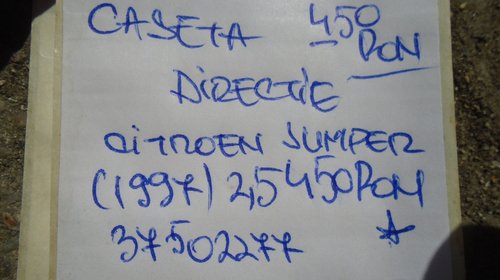 CASETA 450
RON
DIRECTIE
CITROEN JUMPER
(1997) 2,5 450 RON
37502277